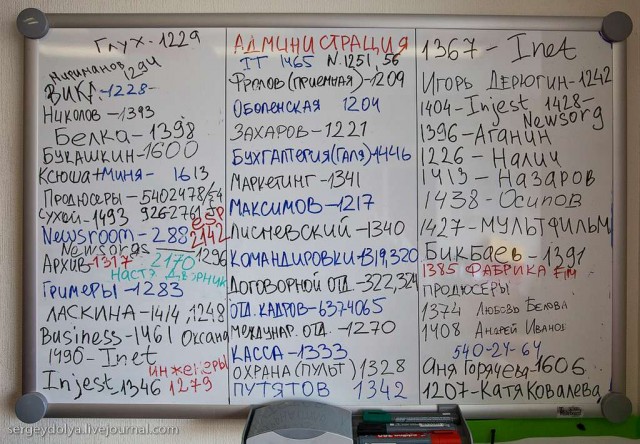 Глух-1229
Мириманов 1294
ВИКА-1228-
Николов-1393
Белка-1398
БУКАШКИН-1600
Ксюша+Миня-1613
Продюсеры-5402478/
Сухой-1493 9262761
Newsroom-288 2142
Newsorgs 1296
Архив-1317 2170
Настя Дворник
Гримеры-1283
ЛАСКИНА-1414, 1248
Business-1461 Оксана
1490-Inet
инженеры
Injest 1346 1279
АДМИНИСТРАЦИЯ
IT 1465 N.1251, 56
Фролов (приемная)-1209
Оболенская 1204
ЗАХАРОВ-1221
Бухгалтерия(Галя)-1446
Маркетинг-1341
МАКСИМОВ-1217
Лисневский-1340
Командировки-1319,320
Договорной отд.-322,324
ОТД. КАДРОВ-6374065
МЕЖДУНАР. ОТД.-1270
КАССА-1333
ОХРАНА(ПУЛЬТ)1328
ПУТЯТОВ 1342
1367-Inet
Игорь Дерюгин-1242
1404-Injest 1428-
Newsorg
1396-Аганин
1226-Налич
1413-Назаров
1438-Осипов
1427-МУЛЬТФИЛЬМ
Бикбаев-1391
1385 ФАБРИКА
ПРОДЮСЕРЫ
1374 Любовь Белова
1408 Андрей Иванов
540-24-64
Аня Горячева-1606
1207-Катя Ковалева
sergeydolya.livejournal.com